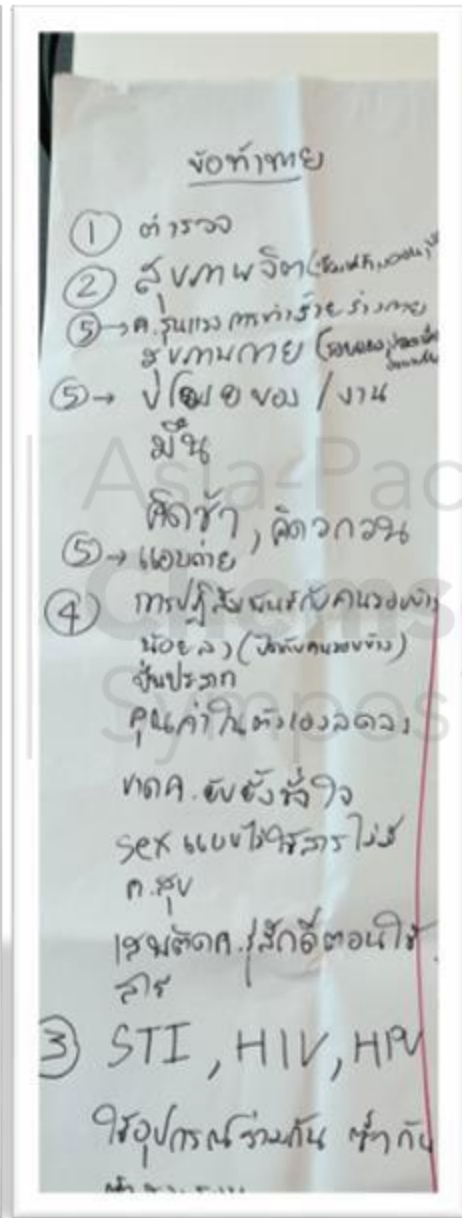 ข้อท้าทาย
① ตำรวจ
② สุขภาพจิต (
⑤→ ค.รุนแรง การทำร้ายร่างกาย
สุขภาพกาย (
⑤→ ขโมยของ / งาน
มึน
คิดช้า, คิดวกวน
⑤→ แอบถ่าย
④ การปฏิสัมพันธ์กับคนรอบข้าง
น้อยลง (
คุณค่าในตัวเองลดลง
ขาดค.ยับยั้งชั่งใจ
sex แบบไม่ใช้สารไม่มี
ค.สุข
เสพติดค.รู้สึกดีตอนใช้
สาร
③ STI, HIV, HPV
ใช้อุปกรณ์ร่วมกัน ซ้ำกัน
Asia-Pac
Chems
Sympos